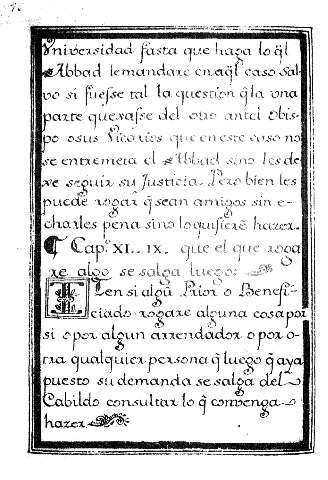 Vniversidad fasta que haga lo q̃l
Abbad lemandare en aq̃l caso sal-
vo si fuesse tal la question q̃ la vna
parte quexasse del otro antel Obis-
po osus Vicarios que en este caso no
se entremeta el Abbad sino les de-
xe seguir su Justicia. Pero bien les
puede rogar q̃ sean amigos sin e-
charles pena sino lo quisierẽ hazer.
¶ Cap.º XL..IX. que el que roga
re algo se salga luego:
Iten si algũ Prior o Benefi-
ciado rogare alguna cosa por
si o por algun arrendador o por o-
tra qualquier persona q̃ luego q̃ aya
puesto su demanda se salga del
Cabildo consultar lo q̃ convenga
hazer